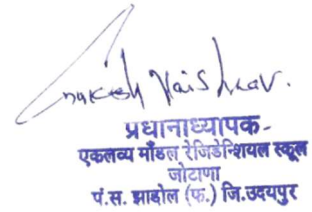 Vaishnav.
प्रधानाध्यापक-
एकलव्य मॉडल रेजिडेन्शियल स्कूल
जोटाणा
पं.स. झाडोल (फ.) जि.उदयपुर